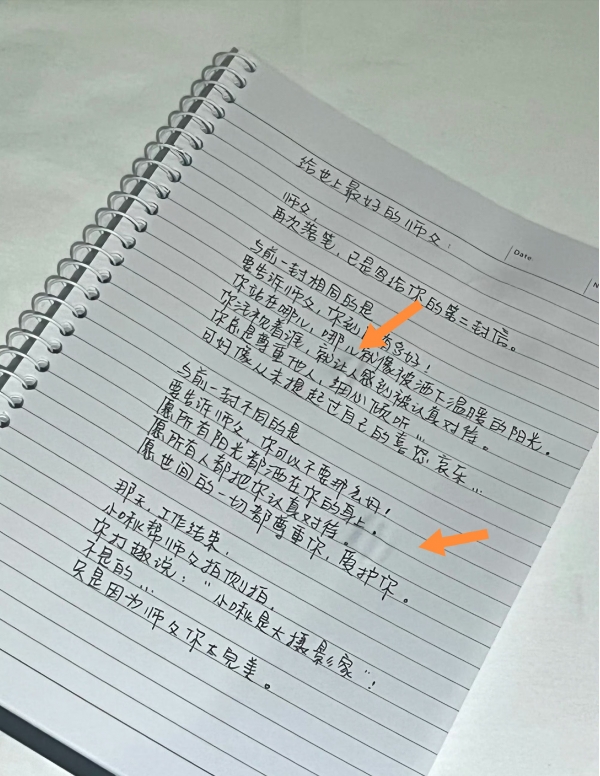 给世上最好的师父：
Date.
N
师父，
再次落笔，已是写给你的第二封信。
与前一封相同的是
要告诉师父，你到底有多好！
你站在哪儿，哪儿就像被洒下温暖的阳光。
你注视着谁，就让人感到被认真对待。
你总是尊重他人，细心倾听…
可好像从未提起过自己的喜怒哀乐…
与前一封不同的是
要告诉师父，你可以不要那么好！
愿所有阳光都洒在你的身上。
愿所有人都把你认真对待。
愿世间的一切都尊重你，爱护你。
那天，工作结束，
小啾帮师父拍侧拍，
你打趣说："小啾是大摄影家"！
不是的…
只是因为师父你太完美。